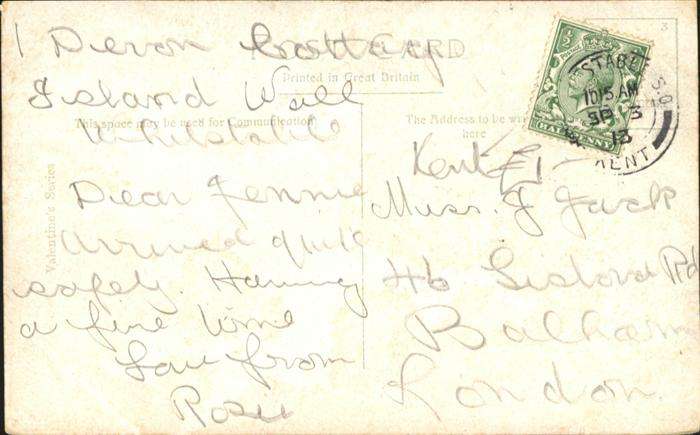 1 Devon Cottage
CARD
Printed in Great Britain
Island Wall
This space may be used for Communication
Whitstable
Dear Jennie
arrived quite
safely. Having
a fine time
Love from
Rosie
Valentine's Series
The Address to be
here
Kent
Miss. J Jack
46 Rd
Balham
London.
3
½
HALFPENNY
STABLE S.O
10.15 AM
SP 3
13
KENT